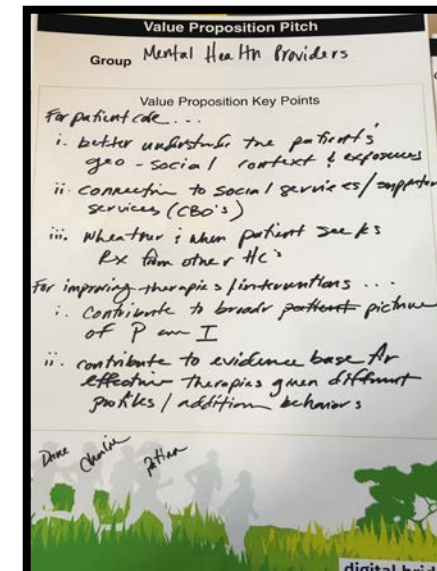 Value Proposition Pitch
Group Mental Health Providers
Value Proposition Key Points
For patient care ...
i. better understand the patient's
geo-social context & exposures
ii. connection to social services/
services (CBO's)
iii. when patient seeks
Rx from other HC's
For improving therapies/interventions ...
i. contribute to broader patient picture
of P I
ii. contribute to evidence base for
effective therapies given different
profiles/addition behaviors
digital brid